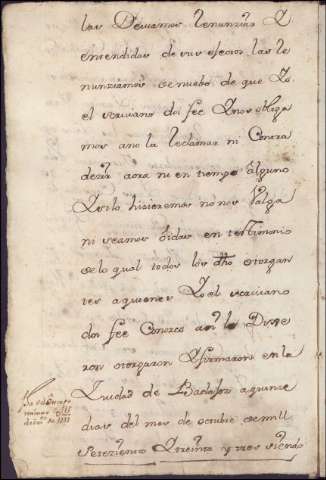 las Devamos Renunziar
entendidas de sus efectos las Re
nunziamos de nuebo de que Yo
el escrivano doi fee Y nos obliga
mos a no la Reclamar ni Contra
dezir aora ni en tiempo alguno
Y si lo hisieremos no nos Valga
ni seamos oidos en testimonio
de lo qual todos los dhos otorgan
tes a quienes Yo el escrivano
doi fee Conozco asi lo Dixe
ron otorgaron Y firmaron en la
Ziudad de Badajoz a quinze
dias del mes de octubre de mill
Setezientos Y treinta y tres siendo